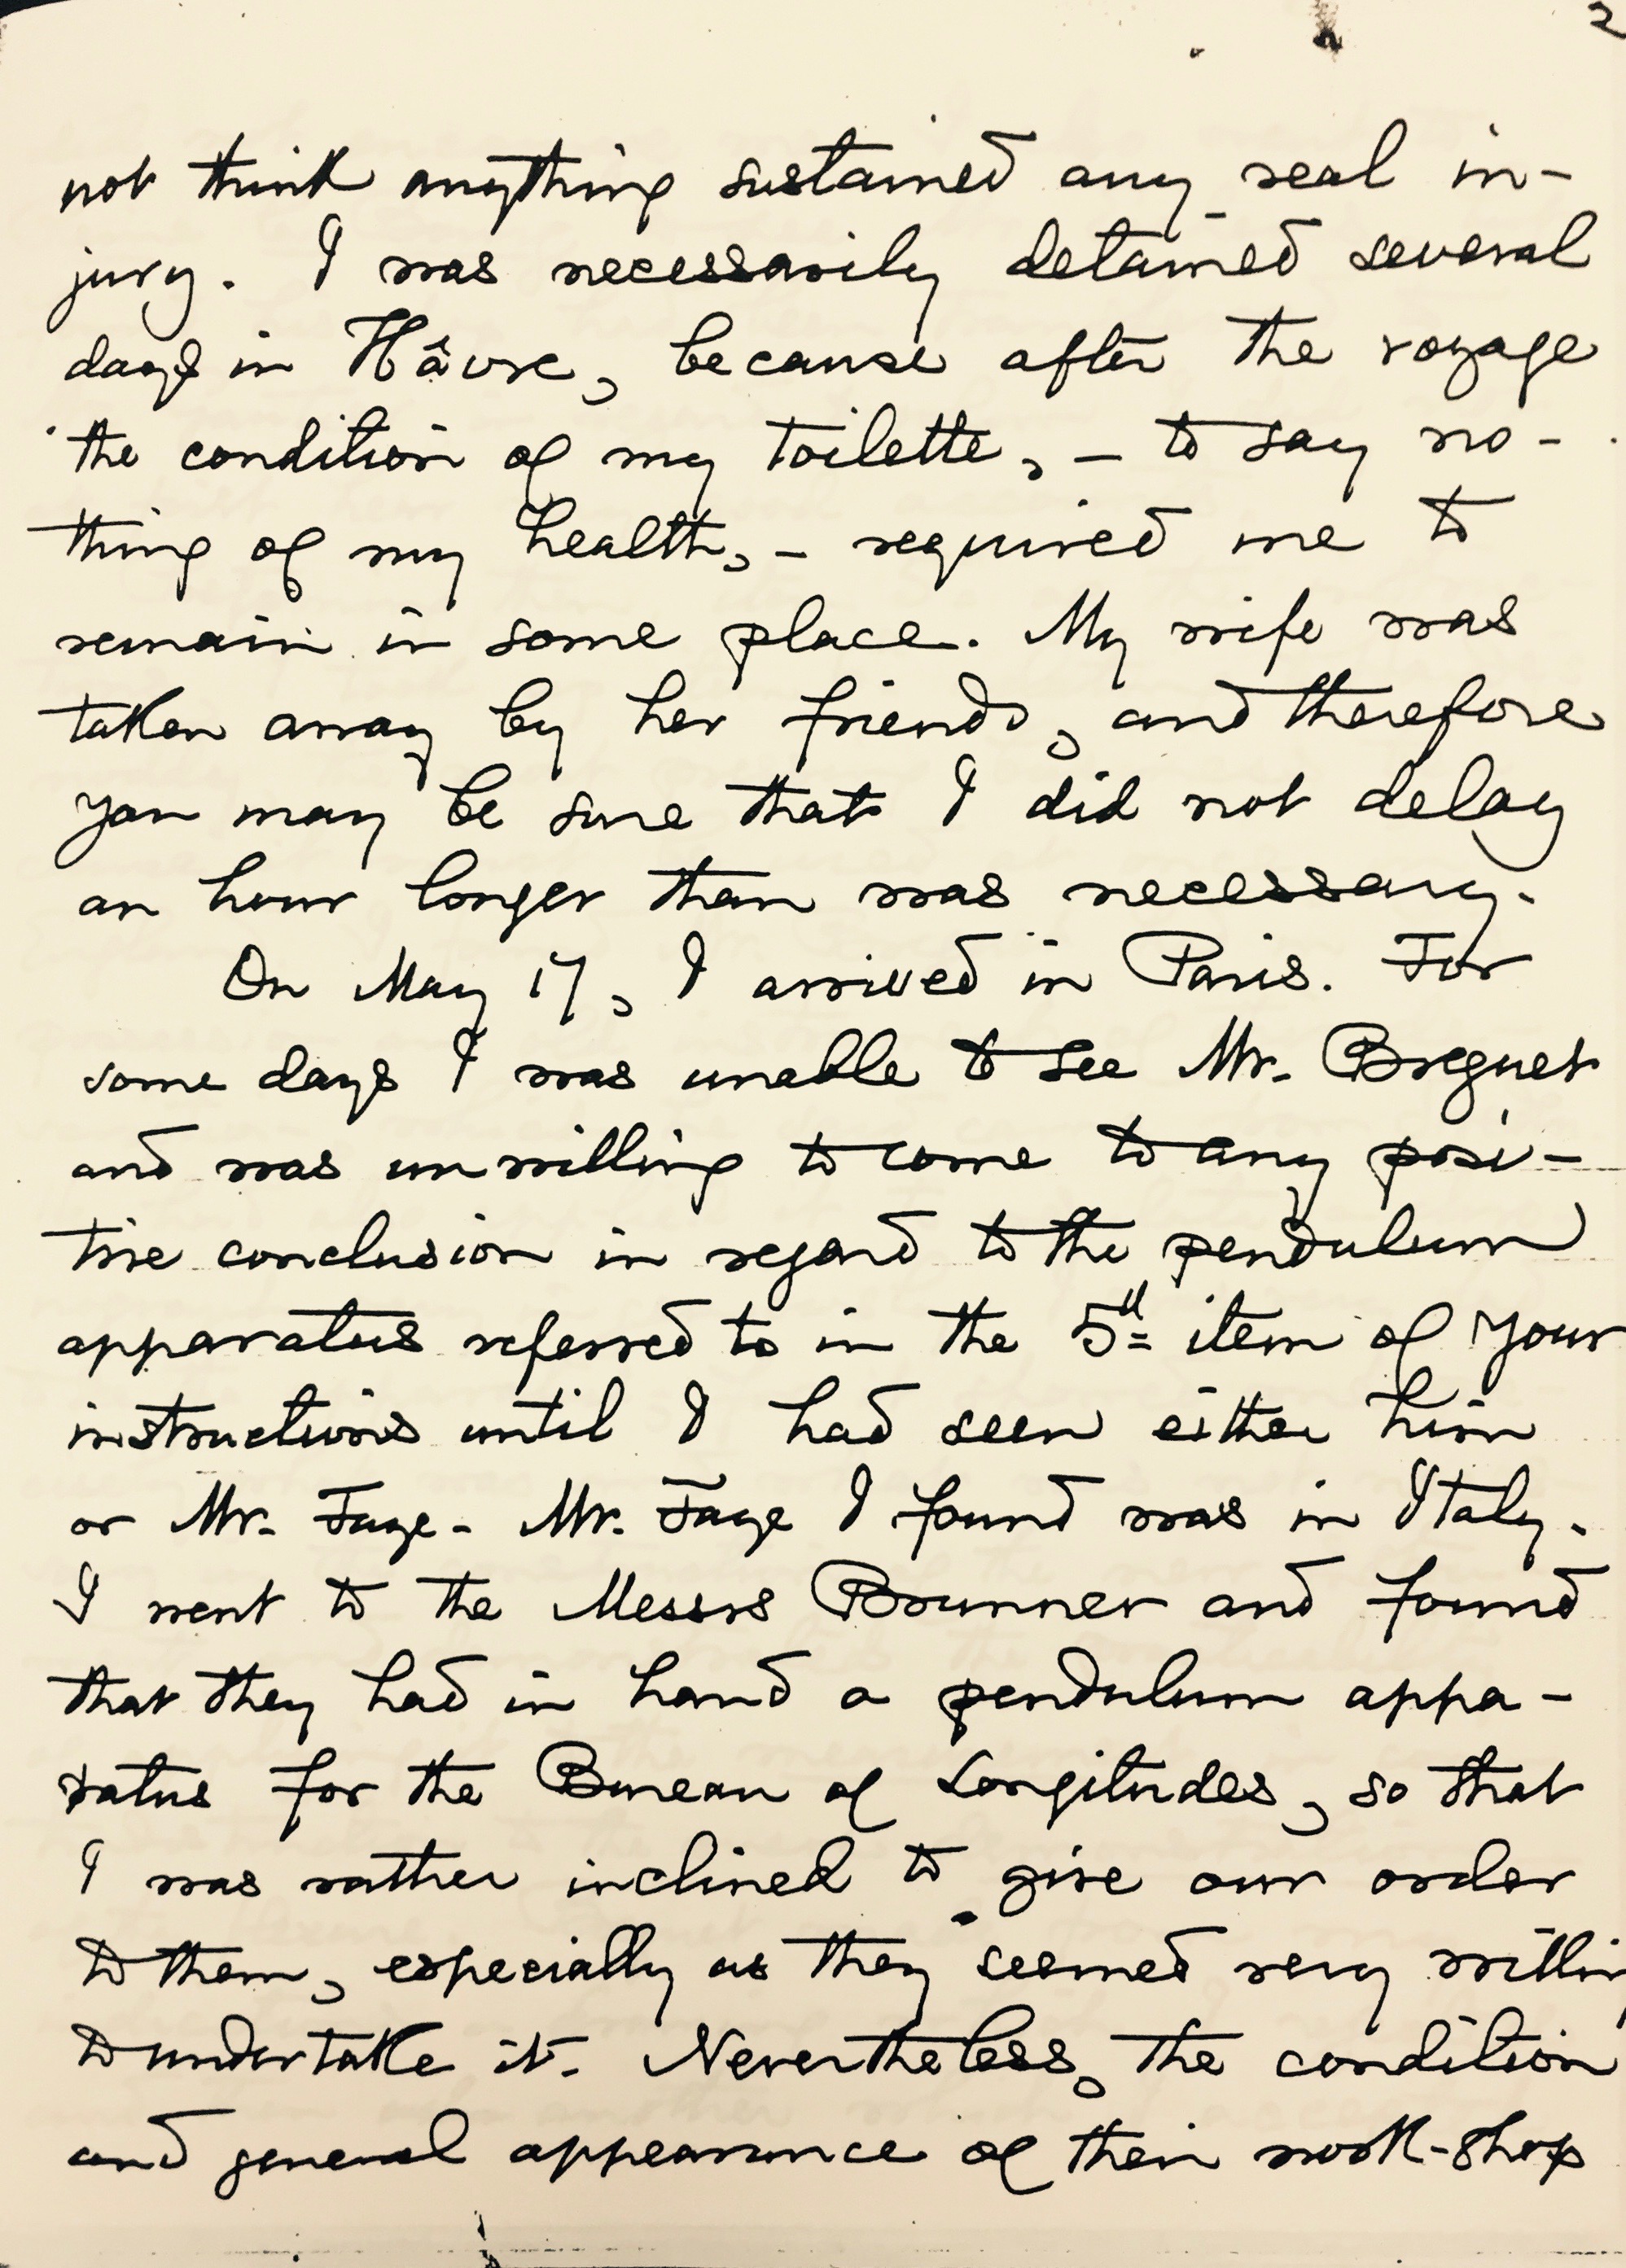 2
not think anything sustained any real in-
jury. I was necessarily detained several
days in Hâvre, because after the voyage
the condition of my toilette, - to say no-
thing of my health, - required me to
remain in some place. My wife was
taken away by her friends, and therefore
you may be sure that I did not delay
an hour longer than was necessary.
On May 17, I arrived in Paris. For
some days I was unable to see Mr. Breguet
and was unwilling to come to any posi-
tive conclusion in regard to the pendulum
apparatus referred to in the 5th item of your
instructions until I had seen either him
or Mr. Faye. Mr. Faye I found was in Italy.
I went to the Messrs Brunner and found
that they had in hand a pendulum appa-
ratus for the Bureau of Longitudes, so that
I was rather inclined to give our order
to them, especially as they seemed very willin
to undertake it. Nevertheless, the condition
and general appearance of their work-shop